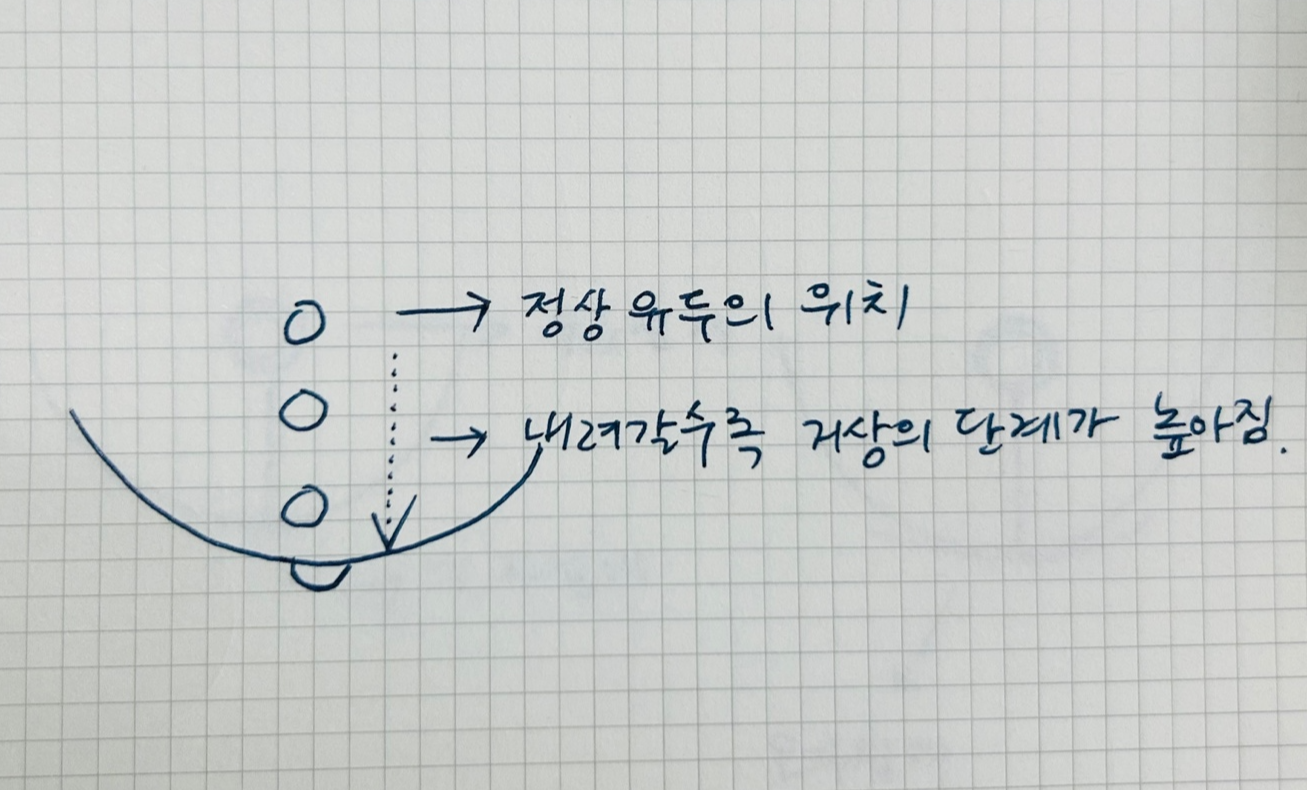 → 정상 유두의 위치
→ 내려갈수록 거상의 단계가 높아짐.